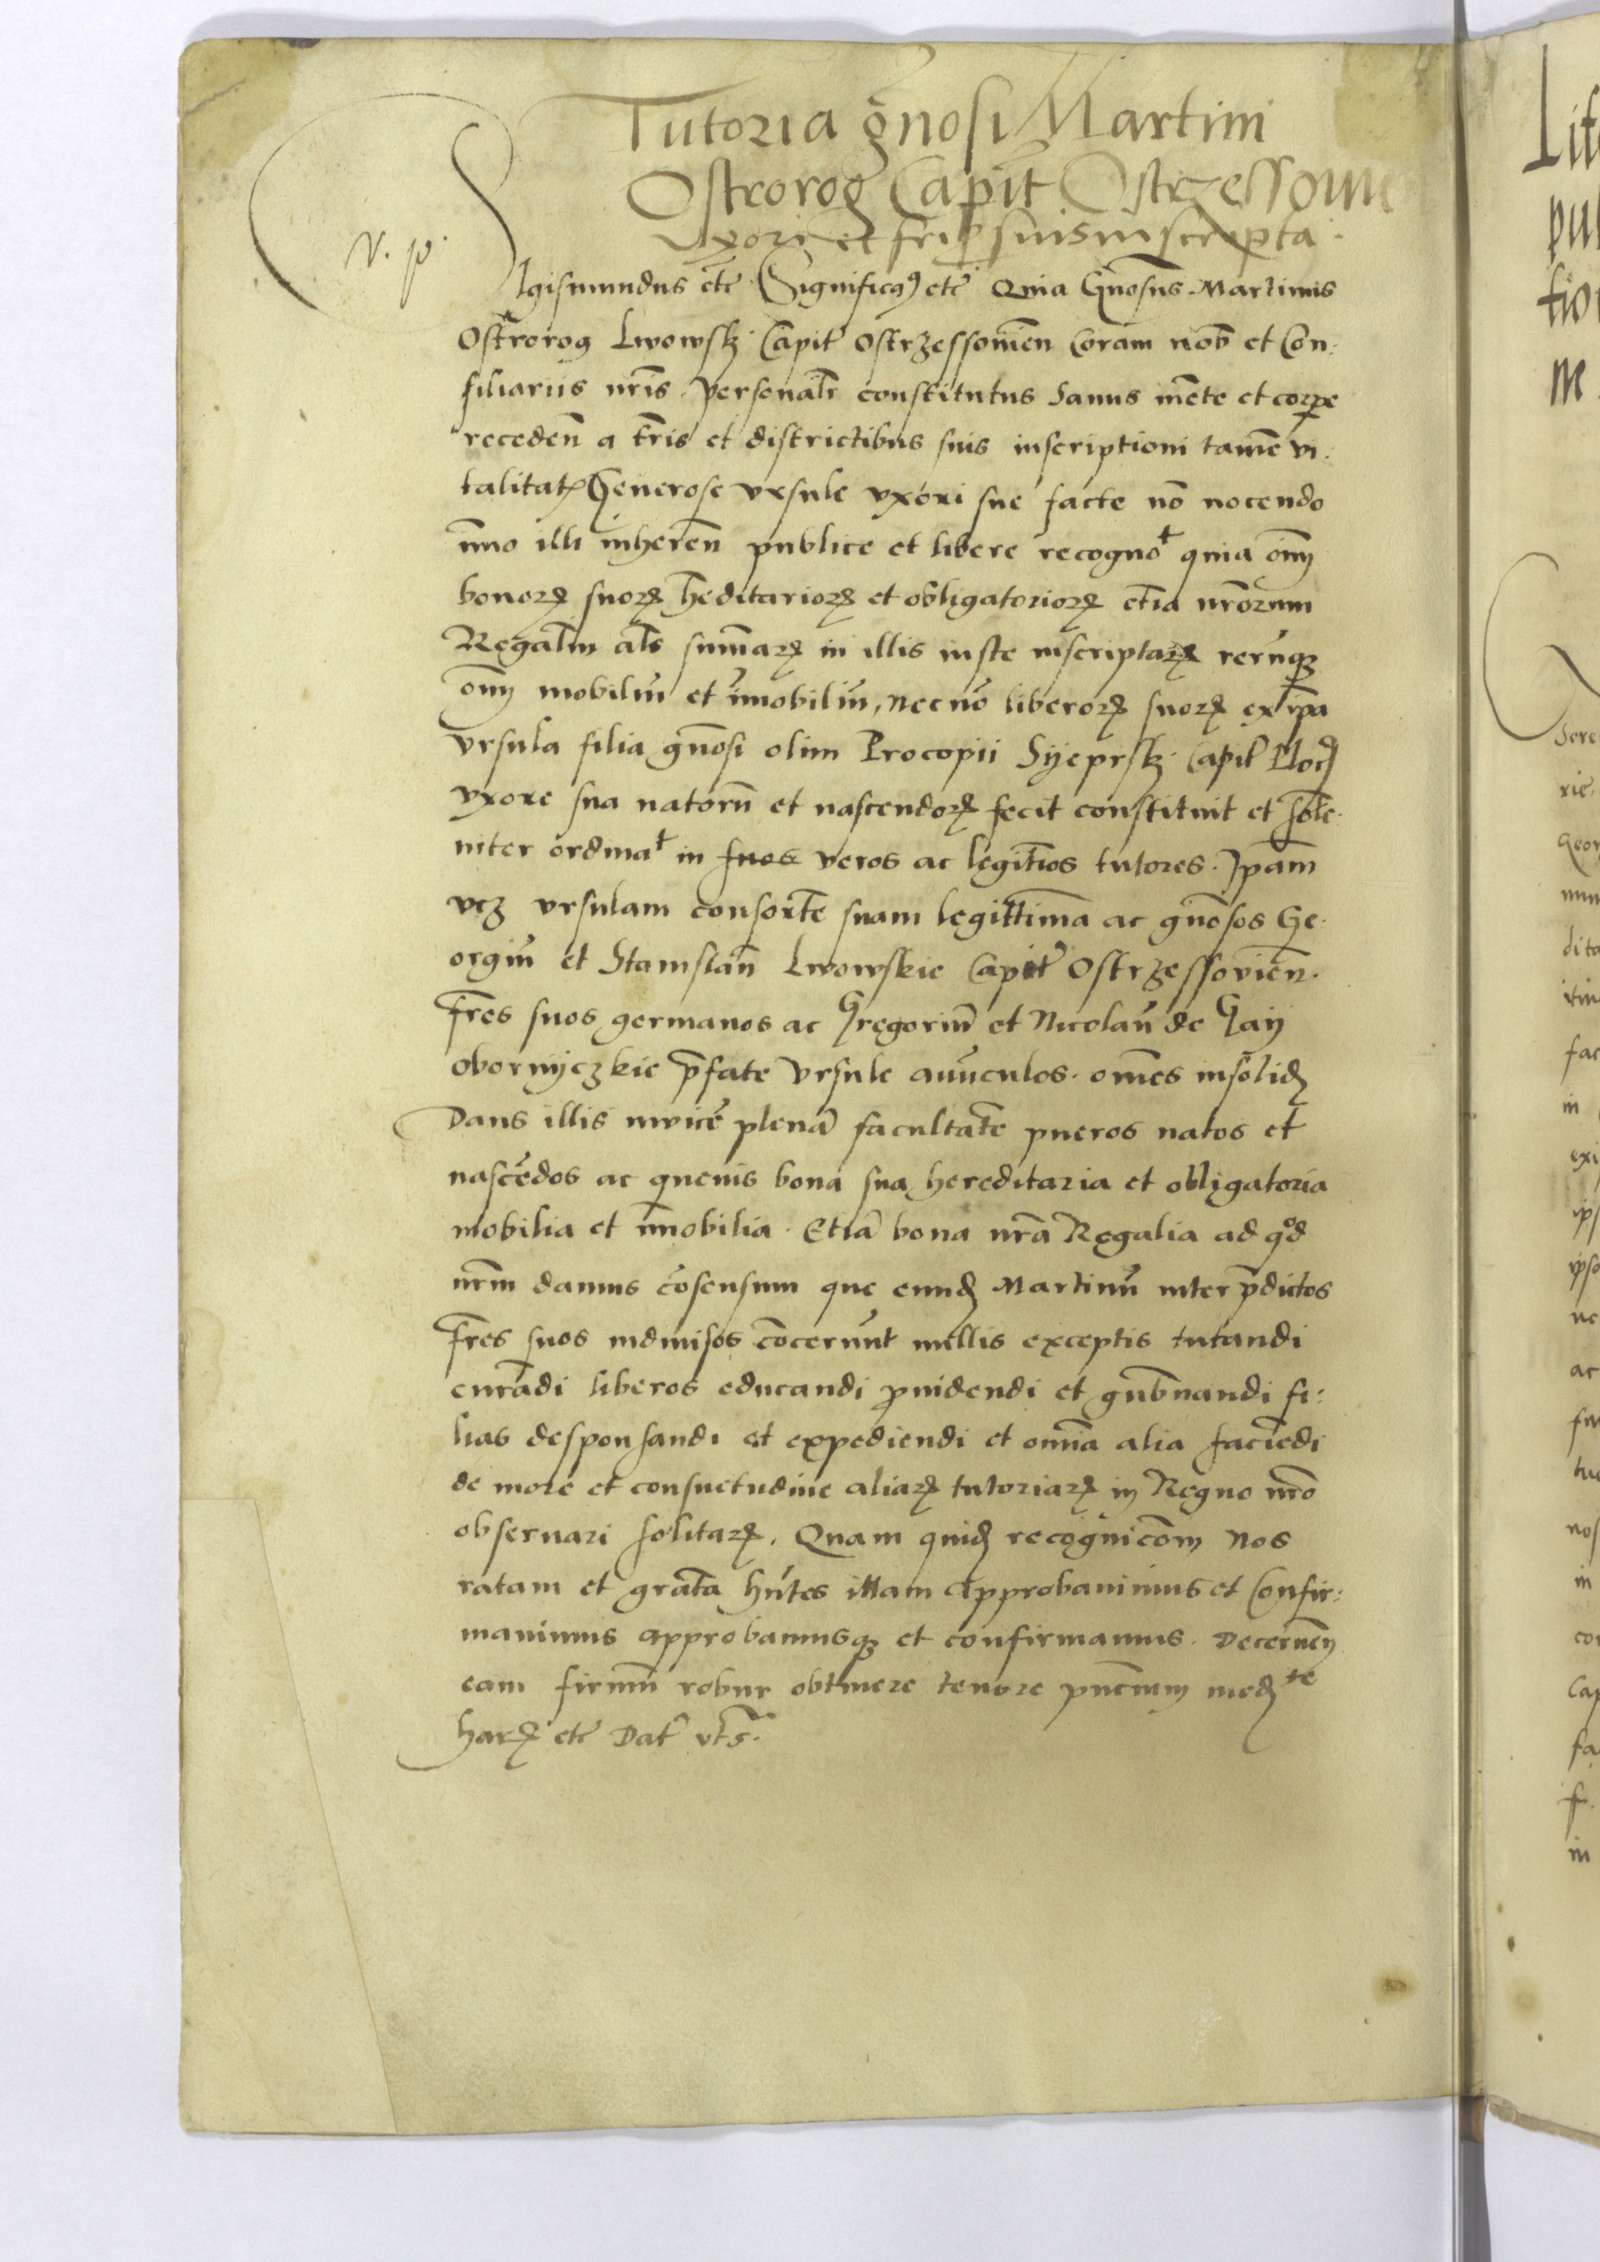 Tutoria gnosi Martini
Ostrorog Capit Ostrzessouie
Vxori et frib suis inscripta.
V. p.
Sigismundus etc Significam9 etc Quia Gnosus Martinus
Ostrorog Lwowskj Capit Ostrzessouien Coram nob et Con:
siliariis nris personalr constitutus Sanus mente et corpe
receden a tris et districtibus suis inscriptioni tamē vi:
talitatꝭ Generose Vrsule vxori sue facte nō nocendo
Immo illi inheren publice et libere recognot quia oīm
bonorꝝ suorꝝ heditariorꝝ et obligatoriorꝝ etiā nrorum
Regaliū als summarꝝ in illis iuste inscriptarꝝ rerumqꝫ
oīm mobiliū et immobiliū, necnō liberorꝝ suorꝝ ex ipa
Vrsula filia gnosi olim Procopii Syeprskj Capit Plocꝭ
vxore sua natorū et nascendorꝝ fecit constituit et sole:
niter ordinat in suos veros ac legitios tutores. Ipam
vcꝫ Vrsulam consortē suam legittimā ac gnosos Ge:
orgiū et Stanislaū Lwowskie Capit Ostrzessouien.
fres suos germanos ac Gregoriū et Nicolaū de Gay
obornyczkie pfate Vrsule auunculos. omēs insolidꝭ
Dans illis inuicē plenā facultatē pueros natos et
nascēdos ac queuis bona sua hereditaria et obligatoria
mobilia et immobilia. Etiā bona nra Regalia ad qod
nrm damus cōsensum que eundꝭ Martinū inter pdictos
fres suos indiuisos cōcernunt nullis exceptis tutandi
curādi liberos educandi puidendi et gubnandi fi:
lias desponsandi et expediendi et omnia alia faciēdi
de more et consuetudine aliarꝝ tutoriarꝝ in Regno nro
obseruari solitarꝝ. Quam quidꝭ recognicōm Nos
ratam et gratā hntes illam approbauimus et Confir:
mauimus approbamusqꝫ et confirmamus. Decernen
eam firmū robur obtinere tenore pnciūm medꝭte
harꝝ etc Dat vts.